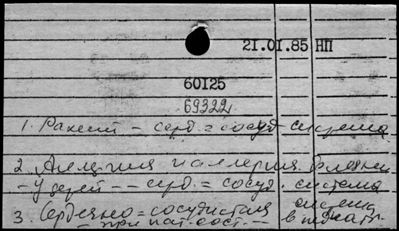 21.01.85 НП
60125
69322
1. Рахит – серд.=сосуд система
2. и аллергия.
– У детей –– серд.= сосуд. система
3. Сердечно=сосудистая система
– при пат. сост. –